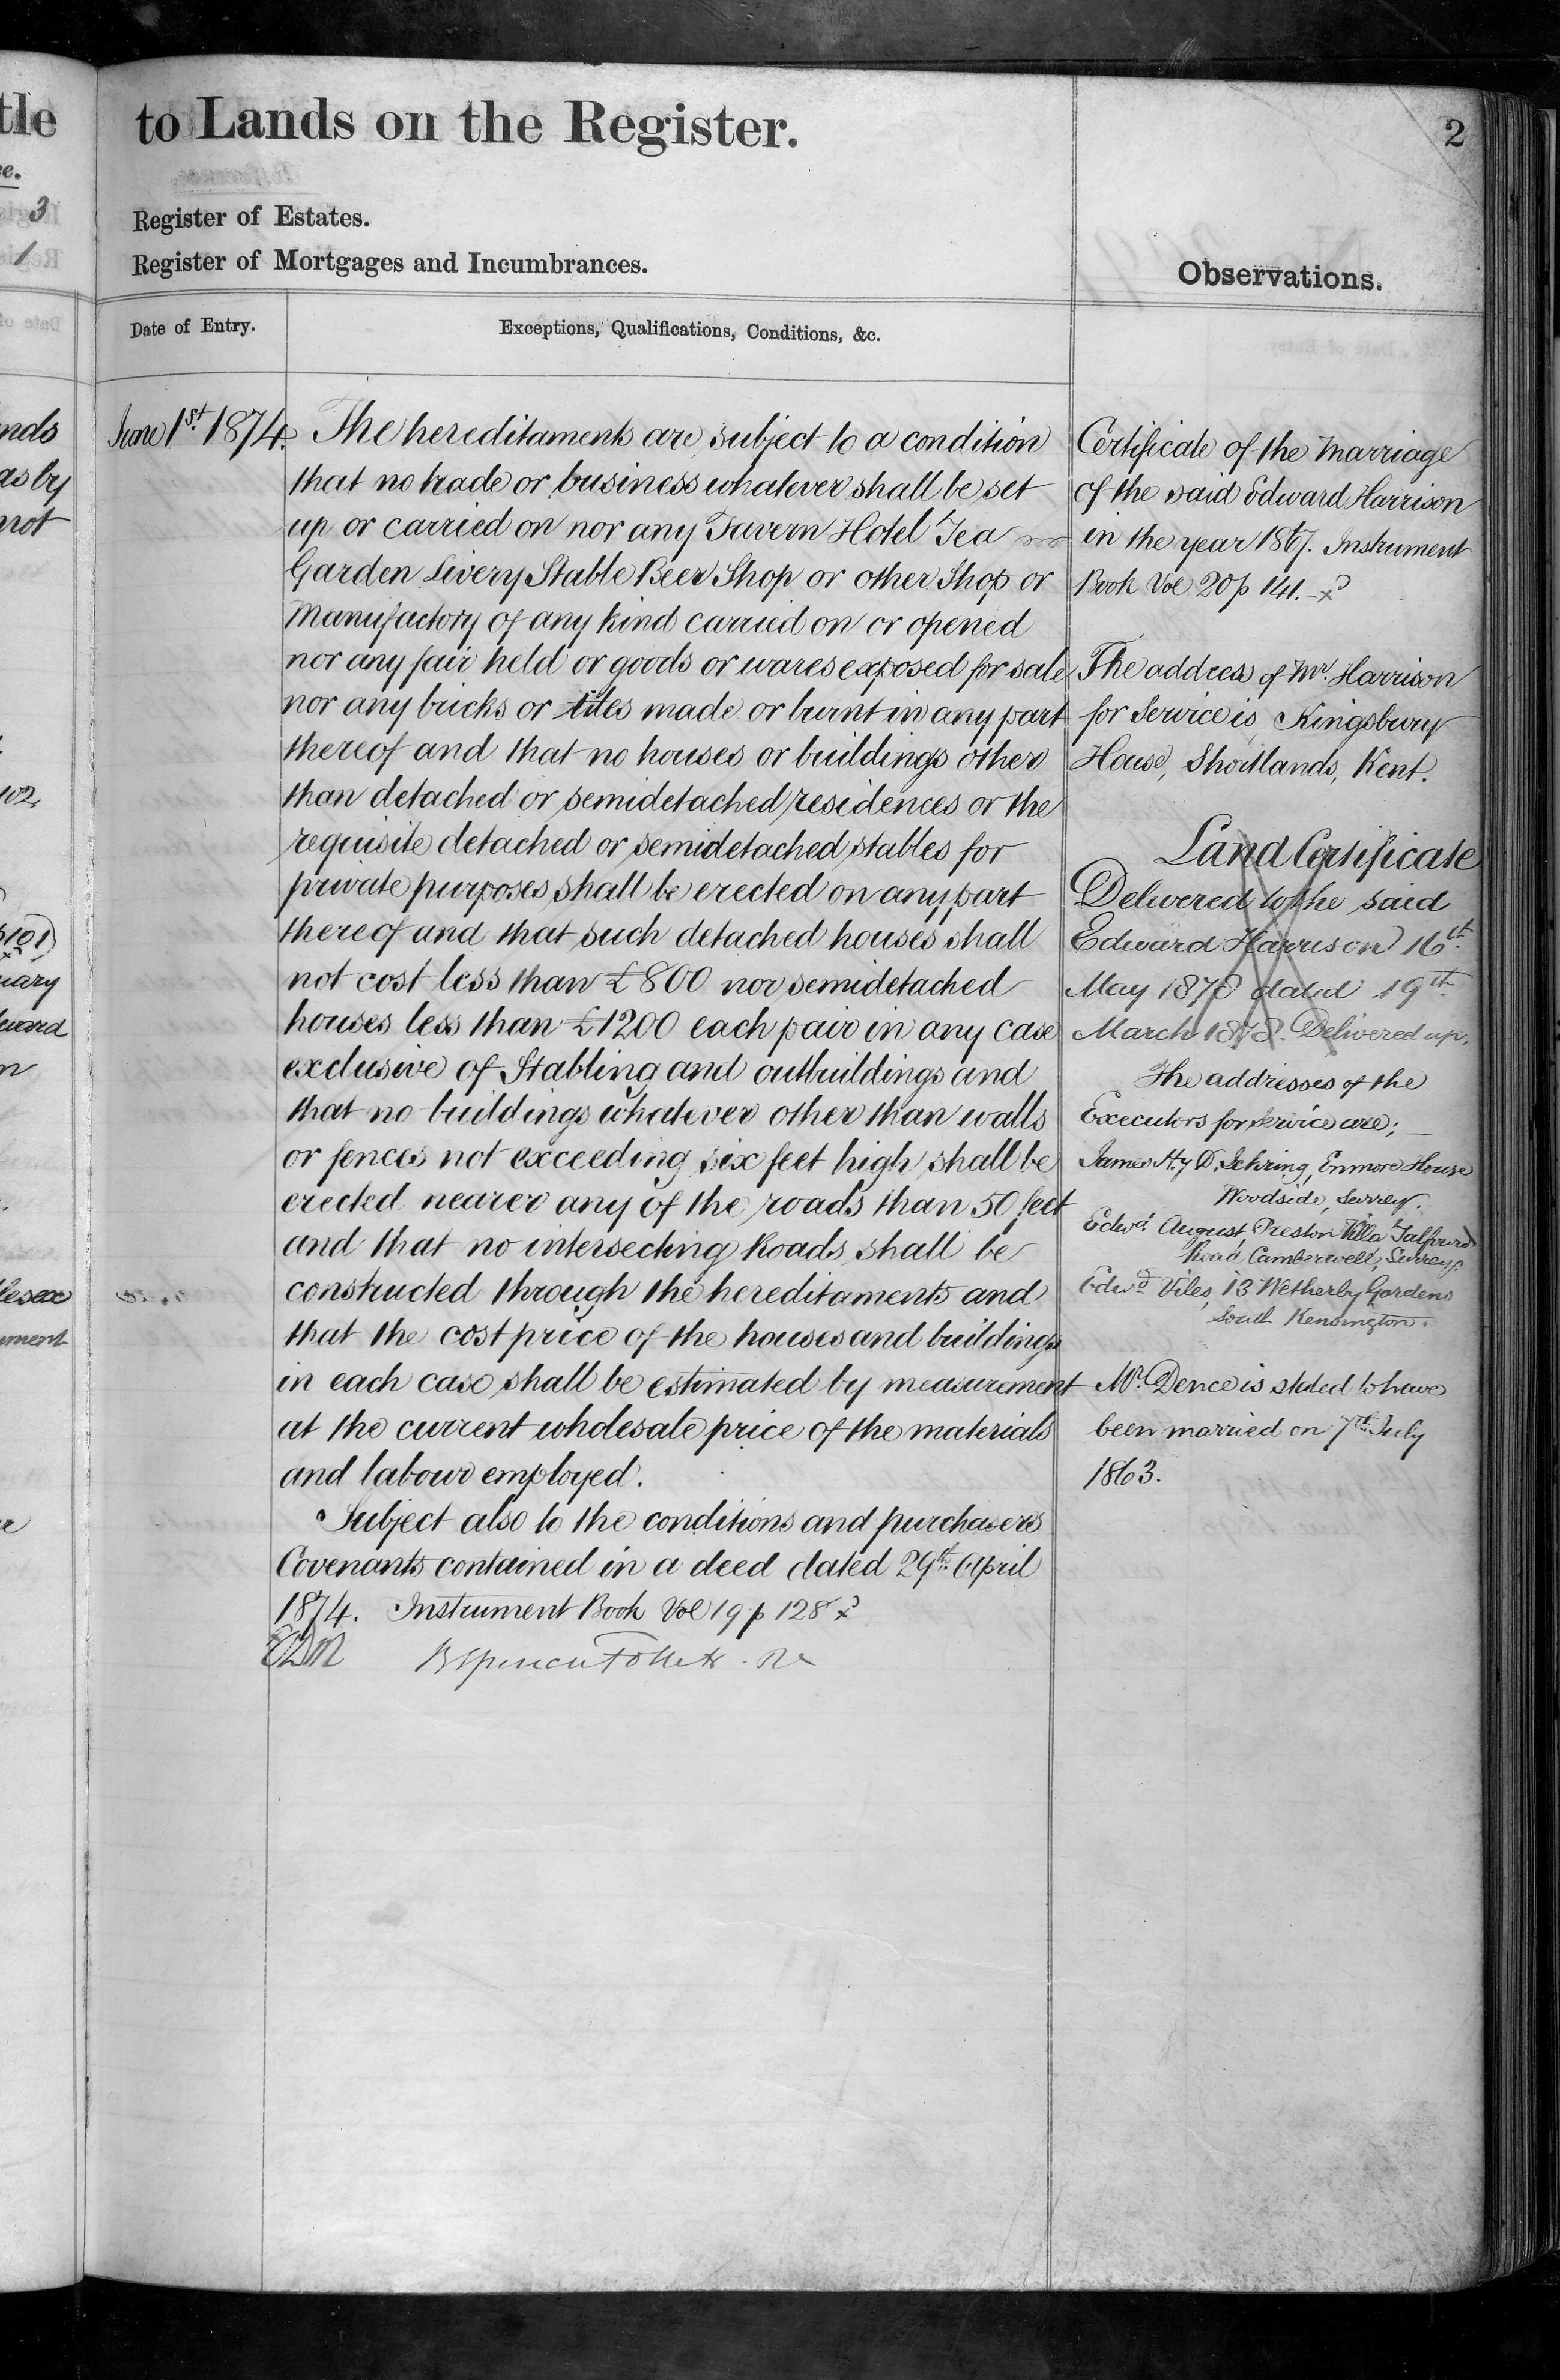 to Lands on the Register.
2
Register of Estates.
Register of Mortgages and Incumbrances.
Observations.
Date of Entry.
Exceptions, Qualifications, Conditions, &c.
June 1st 1874.
The hereditaments are subject to a condition
that no trade or business whatever shall be set
up or carried on nor any Tavern Hotel Tea
Garden Livery Stable Beer Shop or other Shop or
Manufactory of any kind carried on or opened
nor any fair held or goods or wares exposed for sale
nor any bricks or tiles made or burnt in any part
thereof and that no houses or buildings other
than detached or semidetached residences or the
requisite detached or semidetached stables for
private purposes shall be erected on any part
thereof and that such detached houses shall
not cost less than £800 nor semidetached
houses less than £1200 each pair in any case
exclusive of Stabling and outbuildings and
that no buildings whatever other than walls
or fences not exceeding six feet high shall be
erected nearer any of the roads than 50 feet
and that no intersecting Roads shall be
constructed through the hereditaments and
that the cost price of the houses and buildings
in each case shall be estimated by measurement
at the current wholesale price of the materials
and labour employed.
Subject also to the conditions and purchasers
Covenants contained in a deed dated 29th April
1874. Instrument Book Vol 19 p 128
Certificate of the Marriage
of the said Edward Harrison
in the year 1867. Instrument
Book Vol 20 p 141.
The address of Mr. Harrison
for Service is Kingsbury
House, Shortlands, Kent.
Land Certificate
Delivered to the said
Edward Harrison 16th
May 1878 dated 19th
March 1878. Delivered up.
The addresses of the
Executors for Service are;
James Hy D. Sehring, Enmore House
Woodside, Surrey.
Edwd. August, Preston Villa Talfourd
Road Camberwell, Surrey.
Edwd Viles, 13 Wetherby Gardens
South Kensington.
Mr. Dence is stated to have
been married on 7th July
1863.
tle
3
1
nds
as by
not
102,
101)
uary
dward
n
lesex
ument